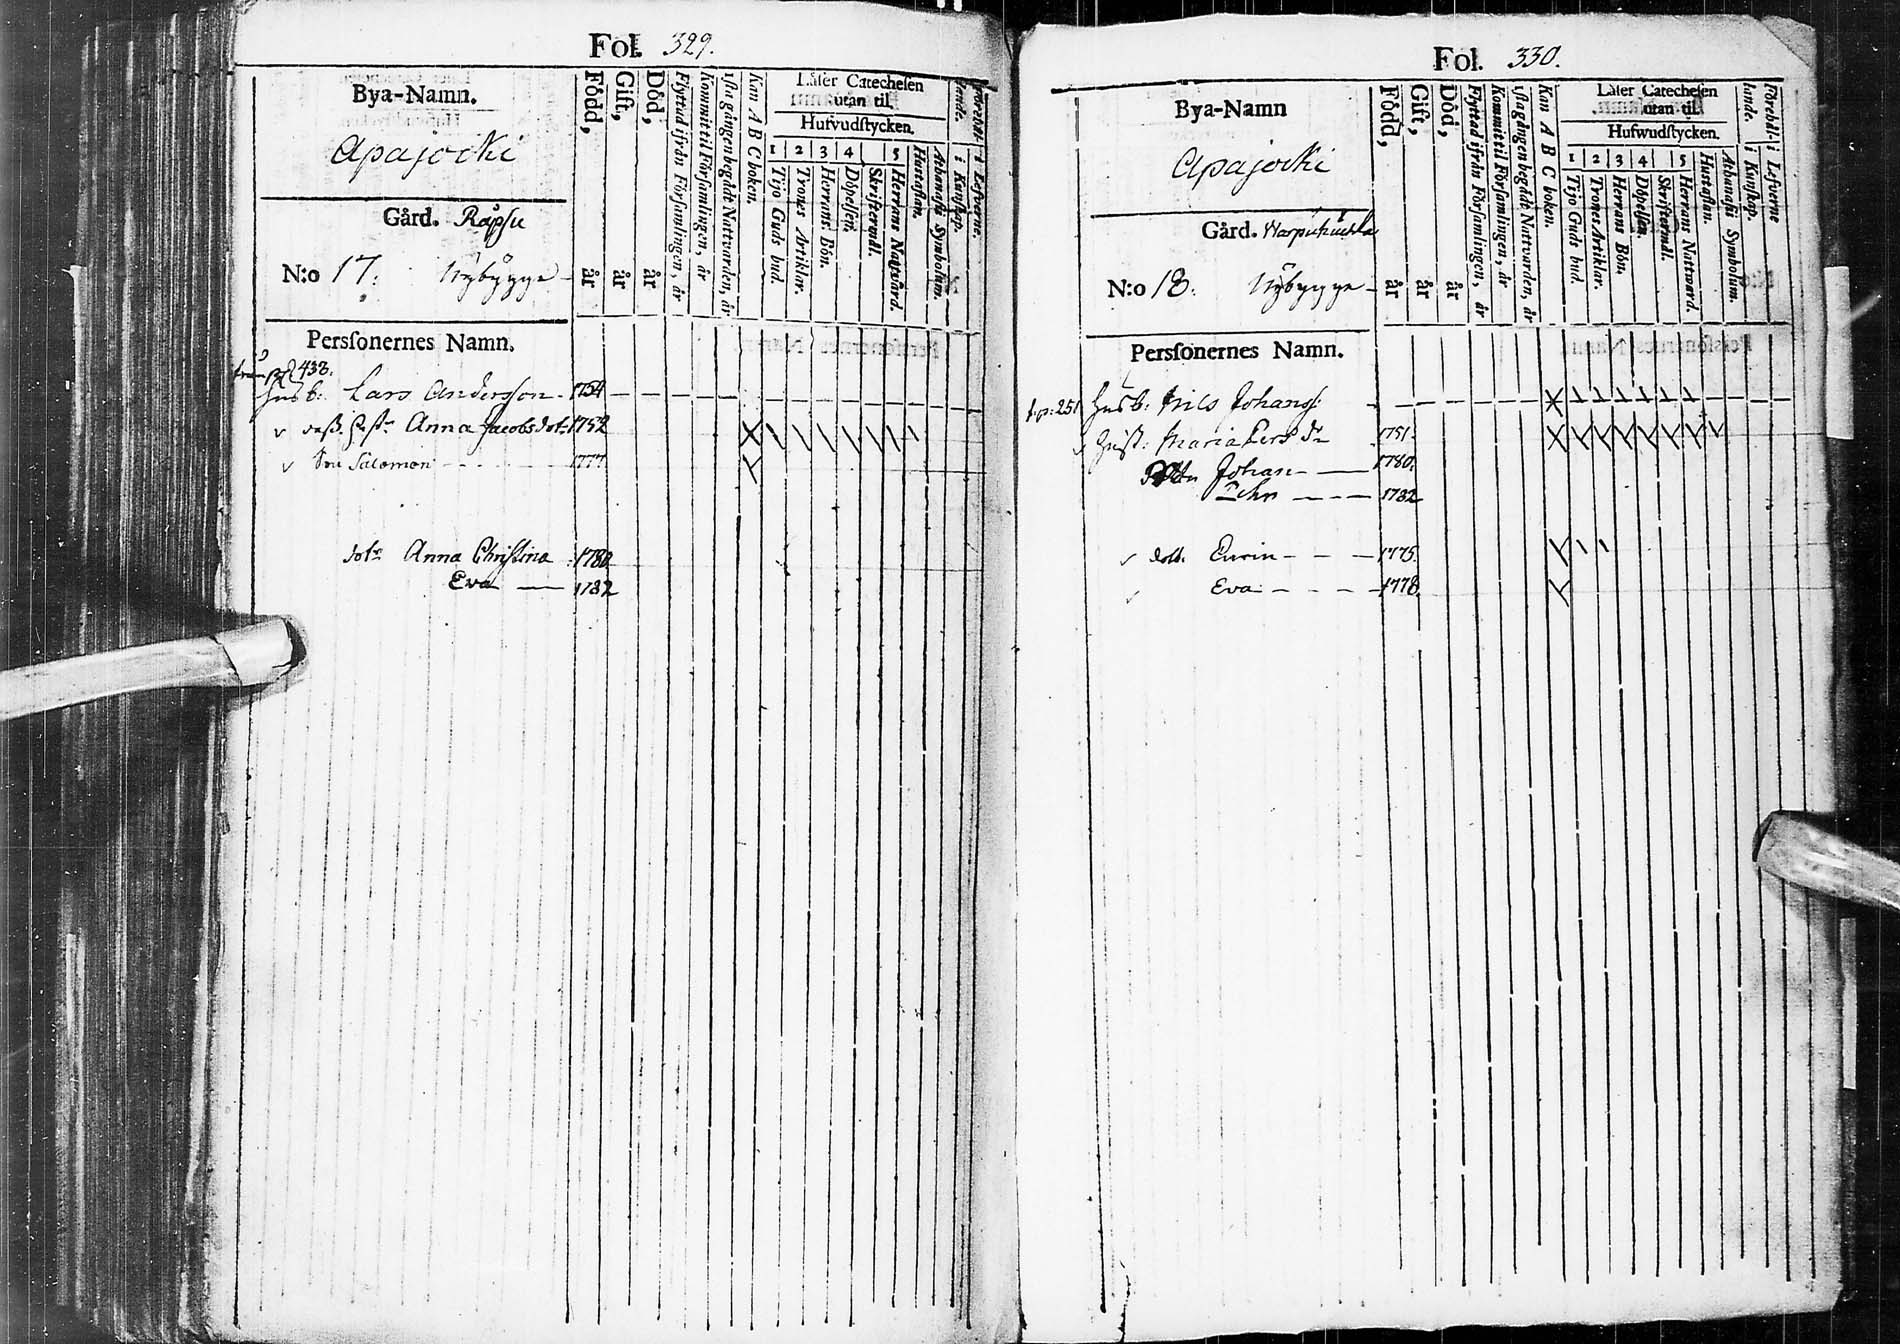 Fol. 329.
Bya-Namn.
Apajocki
Gård. Räpsu
N:o 17. Nybygge
Född, år
Gift, år
Död, år
Flyttad ifrån Församlingen, år
Kommit til Församlingen, år
1sta gången begådt Nattvarden, år
Kan A B C boken.
Läser Catechesen
utan til.
Hufvudstycken.
1 2 3 4 5
Tijo Guds bud.
Trones Artiklar.
Herrans Bön.
Döpelsen.
Skriftermål.
Herrans Nattvård.
Hustaflan.
Athanasii Symbolum.
i Kunskap.
i Lefverne.
Personernes Namn.
från 433.
Husb: Lars Andersson 1754
v Anna Jacobsdotr 1752
v Son Salomon 1777
dotr Anna Christina 1780
Eva 1782
Fol. 330.
Bya-Namn
Apajocki
Gård.
N:o 18. Nybygge
Född, år
Gift, år
Död, år
Flyttad ifrån Församlingen, år
Kommit til Församlingen, år
1sta gången begådt Nattvarden, år
Kan A B C boken.
Läser Catechesen
utan til.
Hufwudstycken.
1 2 3 4 5
Tijo Guds bud.
Trones Artiklar.
Herrans Bön.
Döpelsen.
Skriftermål.
Herrans Nattward.
Hustaflan.
Athanasii Symbolum.
Förehållande. i Kunskap.
i Lefverne
Personernes Namn.
251 Husb: Nils Johanss:
v Hust: Maria Pers dr 1751
Johan 1780
1782
v dottr. 1775
v Eva 1778